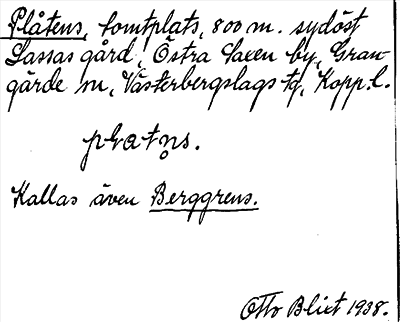 Plåtens, tomtplats, 800 m. sydöst
Lassas gård, Östra Laxen by, Gran-
gärde sn, Västerbergslags tg, Kopp. l.
platns.
Kallas även Berggrens.
Otto Blixt 1938.